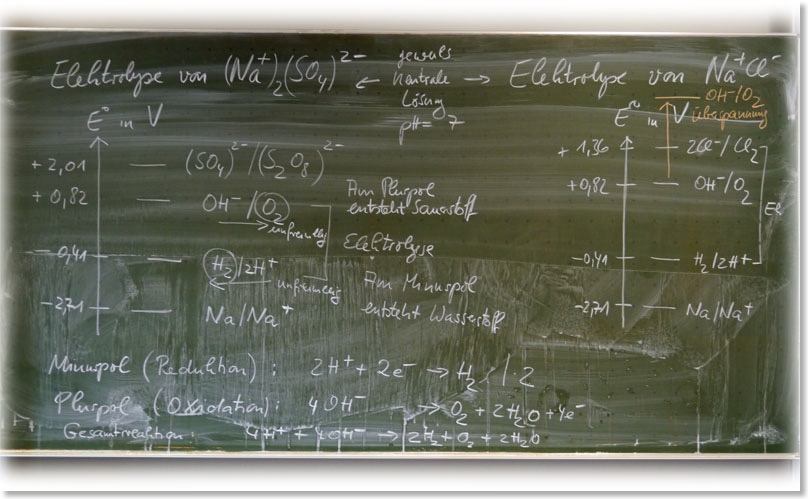 Elektrolyse von (Na⁺)₂(SO₄)²⁻
← jeweils neutrale Lösung pH = 7 →
Elektrolyse von Na⁺Cl⁻
E° in V
+2,01 (SO₄)²⁻/(S₂O₈)²⁻
+0,82 OH⁻/O₂
unfreiwillig
Am Pluspol
entsteht Sauerstoff
Elektrolyse
-0,41 H₂/2H⁺
unfreiwillig
Am Minuspol
entsteht Wasserstoff
-2,71 Na/Na⁺
OH⁻/O₂
E° in V Überspannung
+1,36 2Cl⁻/Cl₂
+0,82 OH⁻/O₂
El
-0,41 H₂/2H⁺
-2,71 Na/Na⁺
Minuspol (Reduktion): 2H⁺ + 2e⁻ → H₂ / · 2
Pluspol (Oxidation): 4OH⁻ → O₂ + 2H₂O + 4e⁻
Gesamtreaktion: 4H⁺ + 4OH⁻ → 2H₂ + O₂ + 2H₂O